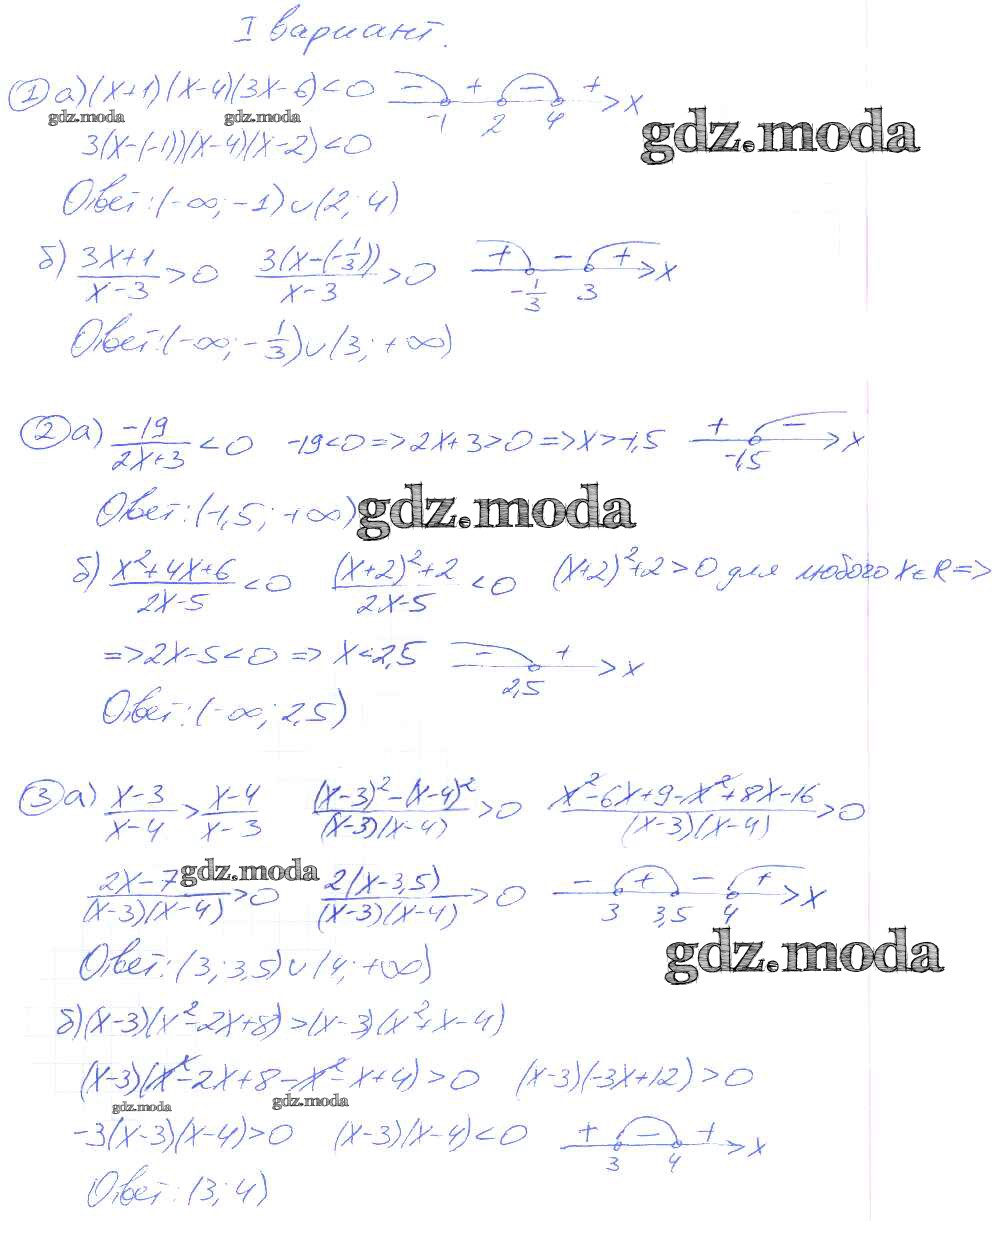 I вариант.
① а) (x+1)(x-4)(3x-6)<0 - + - + x
-1 2 4
gdz.moda gdz.moda gdz.moda
3(x-(-1))(x-4)(x-2)<0
Ответ: (-∞; -1)∪(2; 4)
б) (3x+1)/(x-3)>0 3(x-(-1/3))/(x-3)>0 + - + x
-1/3 3
Ответ: (-∞; -1/3)∪(3; +∞)
② а) -19/(2x+3)<0 -19<0 => 2x+3>0 => x>-1,5 + - x
-1,5
Ответ: (-1,5; +∞) gdz.moda
б) (x²+4x+6)/(2x-5)<0 ((x+2)²+2)/(2x-5)<0 (x+2)²+2>0 для любого x∈R =>
=> 2x-5<0 => x<2,5 - + x
2,5
Ответ: (-∞; 2,5)
③ а) (x-3)/(x-4)>(x-4)/(x-3) ((x-3)²-(x-4)²)/((x-3)(x-4))>0 (x²-6x+9-x²+8x-16)/((x-3)(x-4))>0
gdz.moda
(2x-7)/((x-3)(x-4))>0 2(x-3,5)/((x-3)(x-4))>0 - + - + x
3 3,5 4
gdz.moda
Ответ: (3; 3,5)∪(4; +∞)
б) (x-3)(x²-2x+8)>(x-3)(x²+x-4)
(x-3)(x²-2x+8-x²-x+4)>0 (x-3)(-3x+12)>0
gdz.moda gdz.moda
-3(x-3)(x-4)>0 (x-3)(x-4)<0 + - + x
3 4
Ответ: (3; 4)